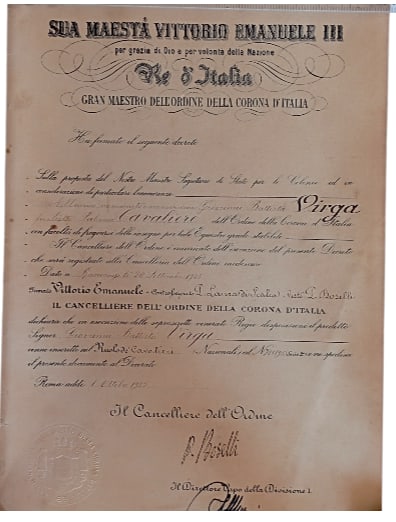 SUA MAESTÀ VITTORIO EMANUELE III
per grazia di Dio e per volontà della Nazione
Re d'Italia
GRAN MAESTRO DELL'ORDINE DELLA CORONA D'ITALIA
Ha firmato il seguente decreto
Sulla proposta del Nostro Ministro Segretario di Stato per le Colonie ed in
considerazione di particolari benemerenze
Giovanni Battista Virga
Cavaliere dell'Ordine della Corona d'Italia
con facoltà di fregiarsi delle insegne per tale Equestre grado stabilite
Il Cancelliere dell'Ordine è incaricato dell'esecuzione del presente Decreto
che sarà registrato alla Cancelleria dell'Ordine medesimo
Dato a
Firmato Vittorio Emanuele P. Boselli
IL CANCELLIERE DELL'ORDINE DELLA CORONA D'ITALIA
dichiara che in esecuzione delle soprascritte venerate Regie disposizioni il predetto
Signor Giovanni Battista Virga
venne inscritto nel Ruolo dei Cavalieri Nazionali al N. e ne spedisce
il presente documento al Decorato
Roma addì 1 Ottobre
Il Cancelliere dell'Ordine
P. Boselli
Il Direttore Capo della Divisione I